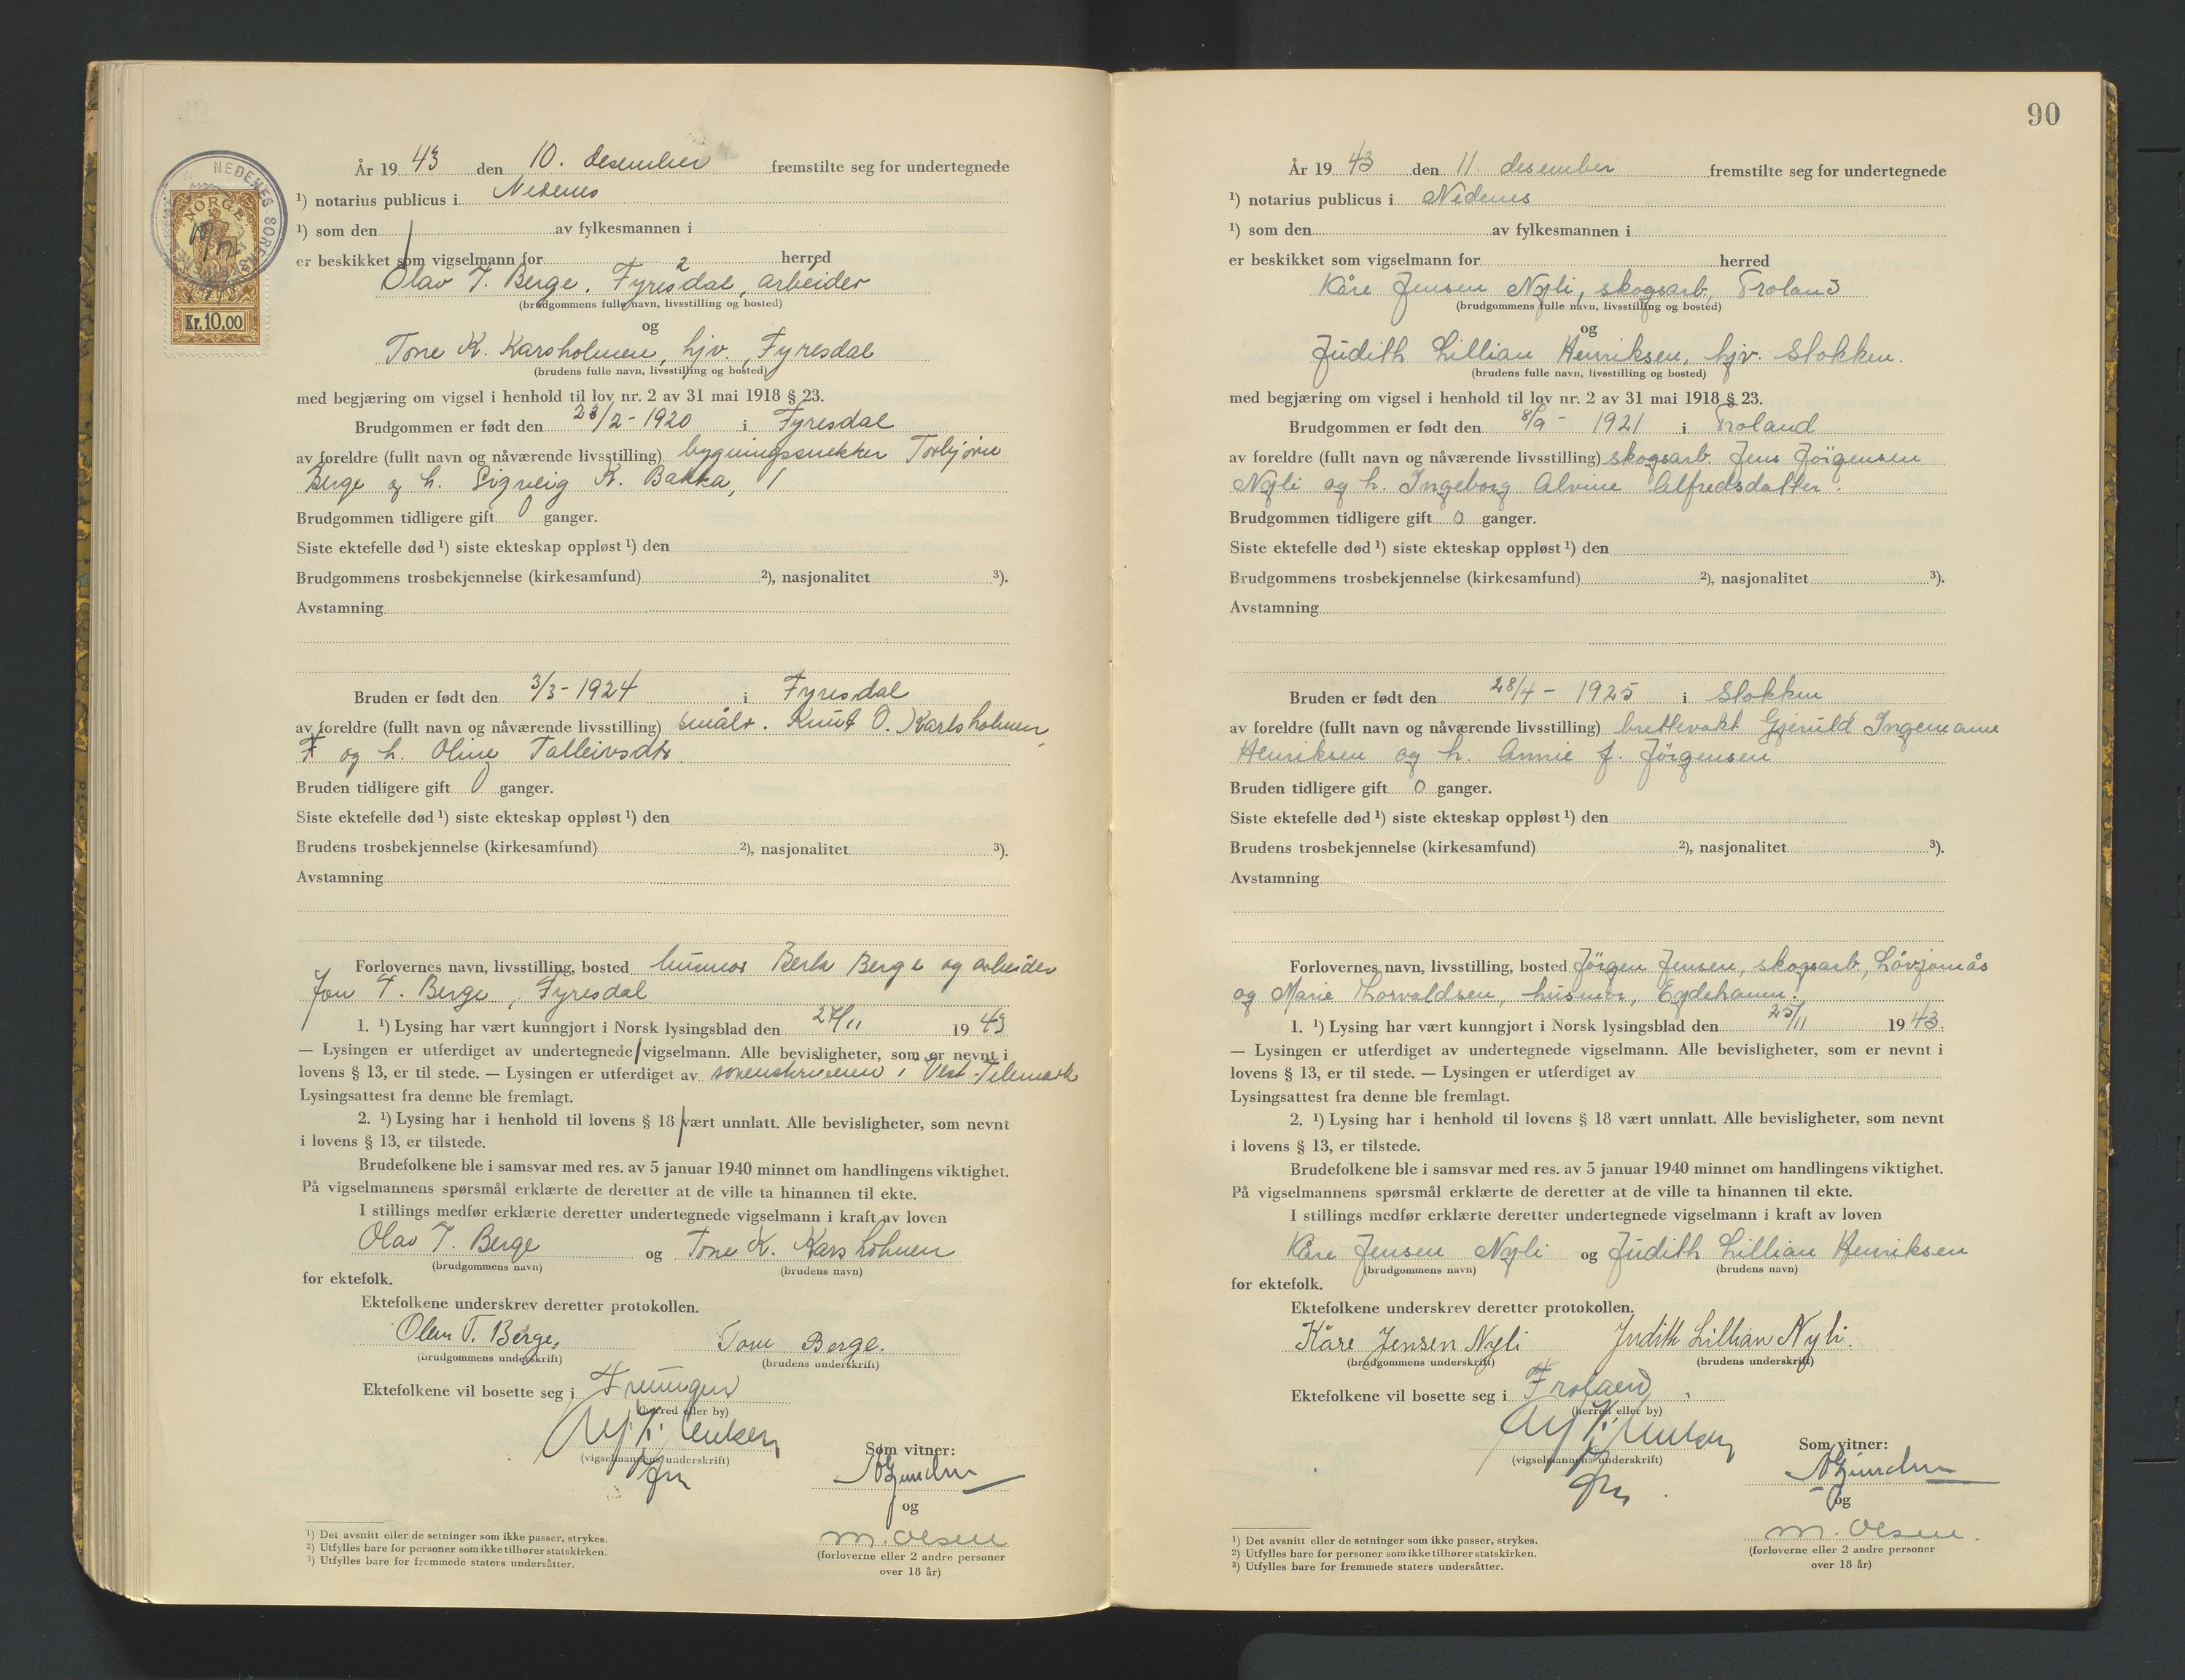 År 1943 den 10. desember fremstilte seg for undertegnede
¹) notarius publicus i Nedenes
¹) som den av fylkesmannen i
er beskikket som vigselmann for herred
Olav T. Berge, Fyresdal, arbeider
(brudgommens fulle navn, livsstilling og bosted)
og
Tone K. Karsholmen, hjv., Fyresdal
(brudens fulle navn, livsstilling og bosted)
med begjæring om vigsel i henhold til lov nr. 2 av 31 mai 1918 § 23.
Brudgommen er født den 23/2 - 1920 i Fyresdal
av foreldre (fullt navn og nåværende livsstilling) bygningssnekker Torbjørn
Berge og h. Sigveig K. Bakka,
Brudgommen tidligere gift 0 ganger.
Siste ektefelle død ¹) siste ekteskap oppløst ¹) den
Brudgommens trosbekjennelse (kirkesamfund) ²), nasjonalitet ³).
Avstamning
Bruden er født den 3/3 - 1924 i Fyresdal
av foreldre (fullt navn og nåværende livsstilling) småbr. Knut O. Karlsholmen,
F og h. Oline Talleivsdtr.
Bruden tidligere gift 0 ganger.
Siste ektefelle død ¹) siste ekteskap oppløst ¹) den
Brudens trosbekjennelse (kirkesamfund) ²), nasjonalitet ³).
Avstamning
Forlovernes navn, livsstilling, bosted husmor Berta Berge og arbeider
Jon T. Berge, Fyresdal
1. ¹) Lysing har vært kunngjort i Norsk lysingsblad den 27/11 1943
— Lysingen er utferdiget av undertegnede vigselmann. Alle bevisligheter, som er nevnt i
lovens § 13, er til stede. — Lysingen er utferdiget av sorenskriveren i Vest-Telemark
Lysingsattest fra denne ble fremlagt.
2. ¹) Lysing har i henhold til lovens § 18 vært unnlatt. Alle bevisligheter, som nevnt
i lovens § 13, er tilstede.
Brudefolkene ble i samsvar med res. av 5 januar 1940 minnet om handlingens viktighet.
På vigselmannens spørsmål erklærte de deretter at de ville ta hinannen til ekte.
I stillings medfør erklærte deretter undertegnede vigselmann i kraft av loven
Olav T. Berge og Tone K. Karsholmen
(brudgommens navn) (brudens navn)
for ektefolk.
Ektefolkene underskrev deretter protokollen.
Olav T. Berge, Tone Berge.
(brudgommens underskrift) (brudens underskrift)
Ektefolkene vil bosette seg i Treungen
(herred eller by)
(vigselmannens underskrift)
Som vitner:
og
M. Olsen
(forloverne eller 2 andre personer
over 18 år)
¹) Det avsnitt eller de setninger som ikke passer, strykes.
²) Utfylles bare for personer som ikke tilhører statskirken.
³) Utfylles bare for fremmede staters undersåtter.
NORGE
Kr. 10.00
90
År 1943 den 11. desember fremstilte seg for undertegnede
¹) notarius publicus i Nedenes
¹) som den av fylkesmannen i
er beskikket som vigselmann for herred
Kåre Jensen Nyli, skogsarb, Froland
(brudgommens fulle navn, livsstilling og bosted)
og
Judith Lillian Henriksen, hjv. Stokken.
(brudens fulle navn, livsstilling og bosted)
med begjæring om vigsel i henhold til lov nr. 2 av 31 mai 1918 § 23.
Brudgommen er født den 8/9 - 1921 i Froland
av foreldre (fullt navn og nåværende livsstilling) skogsarb. Jens Jörgensen
Nyli og h. Ingeborg Alvine Alfredsdatter.
Brudgommen tidligere gift 0 ganger.
Siste ektefelle død ¹) siste ekteskap oppløst ¹) den
Brudgommens trosbekjennelse (kirkesamfund) ²), nasjonalitet ³).
Avstamning
Bruden er født den 28/4 - 1925 i Stokken
av foreldre (fullt navn og nåværende livsstilling) Gjeruld Ingemann
Henriksen og h. Annie f. Jörgensen
Bruden tidligere gift 0 ganger.
Siste ektefelle død ¹) siste ekteskap oppløst ¹) den
Brudens trosbekjennelse (kirkesamfund) ²), nasjonalitet ³).
Avstamning
Forlovernes navn, livsstilling, bosted Jörgen Jensen, skogsarb, Lövjomås
og Marie Thorvaldsen, husmor, Eydehavn.
1. ¹) Lysing har vært kunngjort i Norsk lysingsblad den 25/11 1943.
— Lysingen er utferdiget av undertegnede vigselmann. Alle bevisligheter, som er nevnt i
lovens § 13, er til stede. — Lysingen er utferdiget av
Lysingsattest fra denne ble fremlagt.
2. ¹) Lysing har i henhold til lovens § 18 vært unnlatt. Alle bevisligheter, som nevnt
i lovens § 13, er tilstede.
Brudefolkene ble i samsvar med res. av 5 januar 1940 minnet om handlingens viktighet.
På vigselmannens spørsmål erklærte de deretter at de ville ta hinannen til ekte.
I stillings medfør erklærte deretter undertegnede vigselmann i kraft av loven
Kåre Jensen Nyli og Judith Lillian Henriksen
(brudgommens navn) (brudens navn)
for ektefolk.
Ektefolkene underskrev deretter protokollen.
Kåre Jensen Nyli Judith Lillian Nyli.
(brudgommens underskrift) (brudens underskrift)
Ektefolkene vil bosette seg i Froland
(herred eller by)
(vigselmannens underskrift)
Som vitner:
og
M. Olsen.
(forloverne eller 2 andre personer
over 18 år)
¹) Det avsnitt eller de setninger som ikke passer, strykes.
²) Utfylles bare for personer som ikke tilhører statskirken.
³) Utfylles bare for fremmede staters undersåtter.